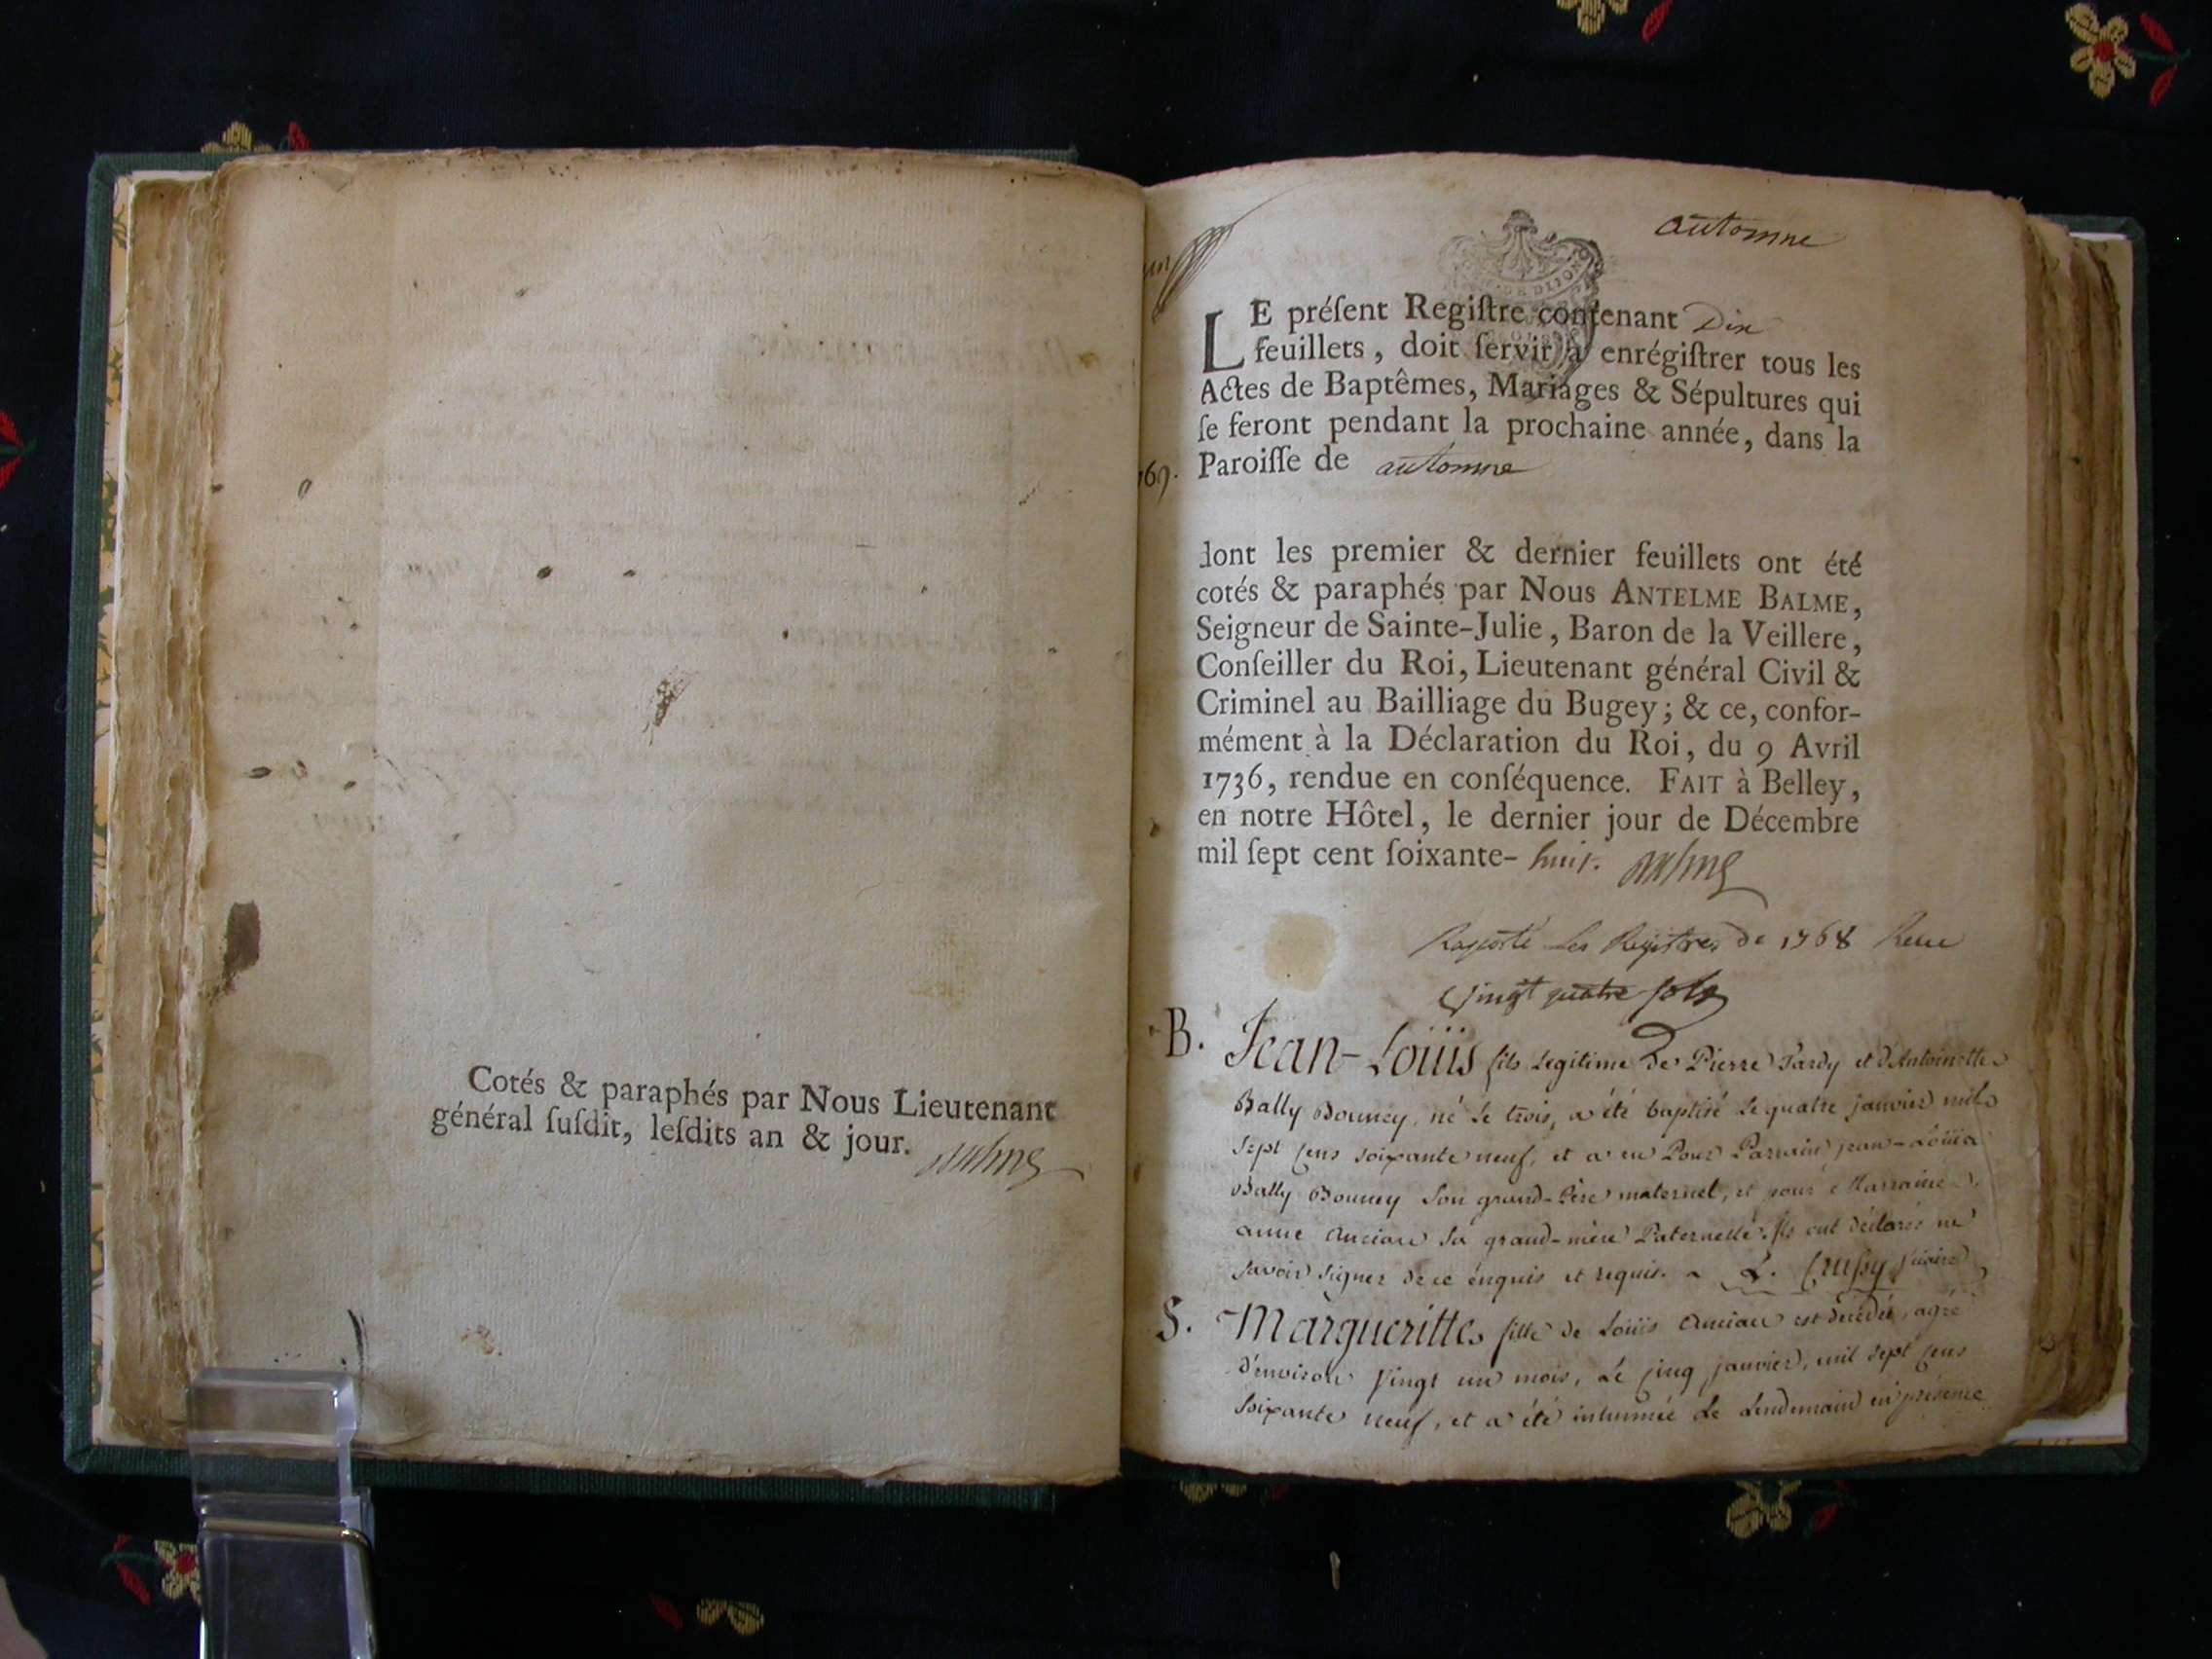 Cotés & paraphés par Nous Lieutenant
général ſuſdit, leſdits an & jour.
automne
LE préſent Regiſtre contenant Dix
feuillets, doit ſervir à enrégiſtrer tous les
Actes de Baptêmes, Mariages & Sépultures qui
ſe feront pendant la prochaine année, dans la
69. Paroiſſe de automne
dont les premier & dernier feuillets ont été
cotés & paraphés par Nous ANTELME BALME,
Seigneur de Sainte-Julie, Baron de la Veillere,
Conſeiller du Roi, Lieutenant général Civil &
Criminel au Bailliage du Bugey; & ce, confor-
mément à la Déclaration du Roi, du 9 Avril
1736, rendue en conſéquence. FAIT à Belley,
en notre Hôtel, le dernier jour de Décembre
mil ſept cent ſoixante- huit. Balme
Raporté les Registres de 1768 Reçu
vingt quatre sols
B. Jean-Loüis fils Legitime De Pierre Tardy et d'Antoinette
Bally Bouney, né le trois, a été baptisé le quatre janvier mil
sept cens soixante neuf, et a eu Pour Parrain jean-Loüis
Bally Bouney son grand-Père maternel, et pour Marraine
anne Ancian sa grand-mère Paternelle. Ils ont déclarés ne
savoir signer de ce enquis et requis. L. Crussy vicaire
S. Margueritte fille de Loüis Ancian est decedée, agée
d'environ vingt un mois, Le cinq janvier, mil sept cens
soixante neuf, et a été inhumée Le Lendemain en présence